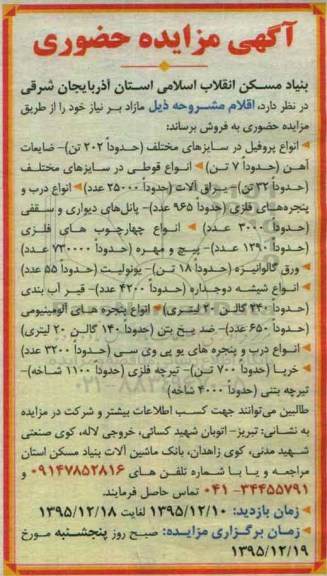 آگهی مزایده حضوری
بنیاد مسکن انقلاب اسلامی استان آذربایجان شرقی
در نظر دارد، اقلام مشروحه ذیل مازاد بر نیاز خود را از طریق
مزایده حضوری به فروش برساند:
انواع پروفیل در سایزهای مختلف (حدوداً ۲۰۲ تن)- ضایعات
آهن (حدوداً ۷ تن) انواع قوطی در سایزهای مختلف
(حدوداً ۳۲ تن)- یراق آلات (حدوداً ۲۵۰۰۰ عدد) انواع درب و
پنجره‌های فلزی (حدوداً ۹۶۵ عدد)- پانل‌های دیواری و سقفی
(حدوداً ۳۰۰۰ عدد) انواع چهارچوب های فلزی
(حدوداً ۱۲۹۰ عدد)- پیچ و مهره (حدوداً ۷۳۰۰۰۰ عدد)
ورق گالوانیزه (حدوداً ۱۸ تن)- یونولیت (حدوداً ۵۵ عدد)
انواع شیشه دوجداره (حدوداً ۴۲۰۰ عدد)- قیر آب بندی
(حدوداً ۲۴۰ گالن ۲۰ لیتری) انواع پنجره های آلومینیومی
(حدوداً ۶۵۰ عدد)- ضد یخ بتن (حدوداً ۱۴۰ گالن ۲۰ لیتری)
انواع درب و پنجره های یو پی وی سی (حدوداً ۳۲۰۰ عدد)
خرپا (حدوداً ۷۰۰ تن)- تیرچه فلزی (حدوداً ۱۱۰۰ شاخه)-
تیرچه بتنی (حدوداً ۴۰۰۰ شاخه)
طالبین می‌توانند جهت کسب اطلاعات بیشتر و شرکت در مزایده
به نشانی: تبریز- اتوبان شهید کسائی، خروجی لاله، کوی صنعتی
شهید مدنی، کوی زاهدان، بانک ماشین آلات بنیاد مسکن استان
مراجعه و یا با شماره تلفن های ۰۹۱۴۷۸۵۲۸۱۶ و
۳۴۴۵۵۷۹۱-۰۴۱ تماس حاصل فرمایند.
زمان بازدید: ۱۳۹۵/۱۲/۱۰ لغایت ۱۳۹۵/۱۲/۱۸
زمان برگزاری مزایده: صبح روز پنجشنبه مورخ
۱۳۹۵/۱۲/۱۹